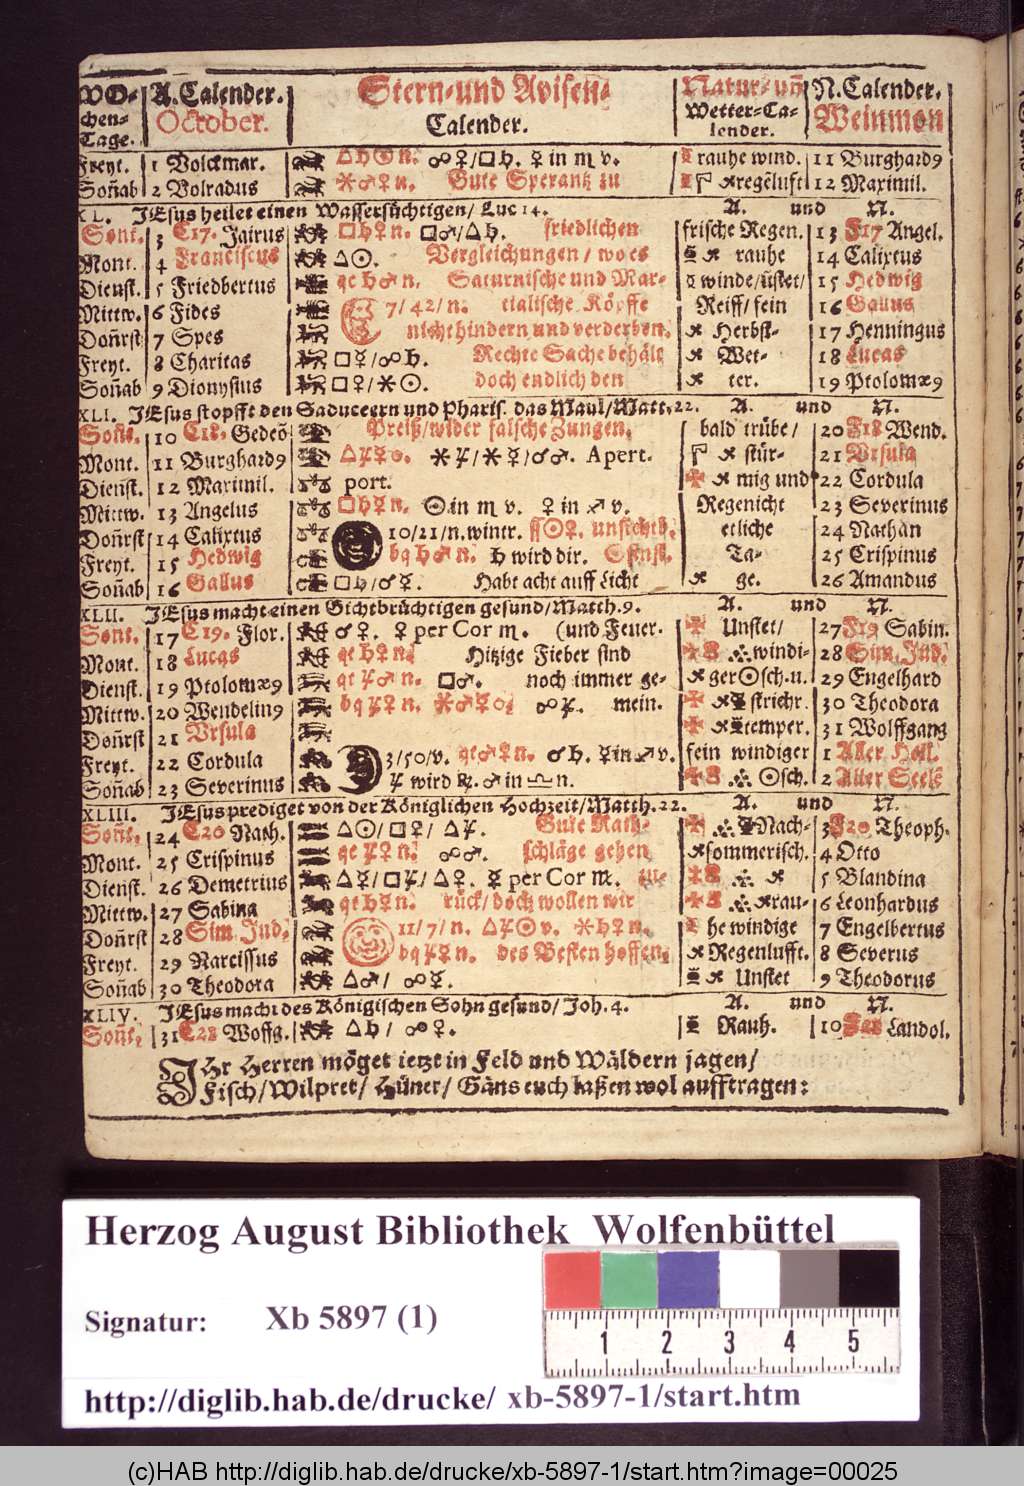 WO- A. Calender. Stern- und Avisen- Natur- uñ N. Calender.
chen- October. Calender. Wetter-Ca- Weinmon
Tage. lender.
Freyt. 1 Volckmar. △♄☉ n. ☍♀/□♄. ♀ in ♏ v. rauhe wind. 11 Burghard9
Soñab 2 Volradus ⚹♂♀ n. Gute Speranß zu regēluft 12 Maximil.
XL. JEsus heilet einen Wassersüchtigen/ Luc 14. A. und N.
Sont. 3 C17. Jairus □♄♀ n. □♂/△♄. friedlichen frische Regen. 13 F17 Angel.
Mont. 4 Franciscus △☉. Vergleichungen/ wo es rauhe 14 Calixtus
Dienst. 5 Friedbertus qc ♄♂ n. Saturnische und Mar- winde/ünstet/ 15 Hedwig
Mittw. 6 Fides 7/42/n. tialische Köpffe Reiff/fein 16 Gallus
Doñrst 7 Spes nicht hindern und verderben. Herbst- 17 Henningus
Freyt. 8 Charitas □☿/☍♄. Rechte Sache behält Wet- 18 Lucas
Soñab 9 Dionysius □♀/⚹☉. doch endlich den ter. 19 Ptolomæ9
XLI. JEsus stopfft den Saduceern und Pharis. das Maul/Matt. 22. A. und N.
Soñt. 10 C18. Gedeõ Preiß/wider falsche Zungen. bald trübe/ 20 F18 Wend.
Mont. 11 Burghard9 ⚹♃/⚹☿/☌♂. Apert. stür- 21 Vrsula
Dienst. 12 Maximil. port. mig und 22 Cordula
Mittw. 13 Angelus □♄☿ n. ☉ in ♏ v. ♀ in ♐ v. Regenicht 23 Severinus
Doñrst 14 Calixtus 10/21/n. wintr. ss☉♀. unsichtb. etliche 24 Nathan
Freyt. 15 Hedwig bq ♄♂ n. ♄ wird dir. Ta- 25 Crispinus
Soñab 16 Gallus □♄/♂☿. Habt acht auff Licht ge. 26 Amandus
XLII. JEsus macht einen Gichtbrüchtigen gesund/Matth. 9. A. und N.
Sont. 17 C19. Flor. ☌♀. ♀ per Cor ♏. (und Feuer. Unstet/ 27 F19 Sabin.
Mont. 18 Lucas qc ♄♀ n. Hitzige Fieber sind windi- 28 Sim. Jud.
Dienst. 19 Ptolomæ9 qc ♃♂ n. □♂. noch immer ge- ger☉sch. u. 29 Engelhard
Mittw. 20 Wendelin9 bq ♃♀ n. ☍♃. mein. strichr. 30 Theodora
Doñrst 21 Vrsula temper. 31 Wolffgang
Freyt. 22 Cordula 3/50/v. qc♂♀ n. ☌♄. ☿ in ♐ v. fein windiger 1 Aller Heil.
Soñab 23 Severinus ♃ wird ℞. ♂ in ♎ n. ☉sch. 2 Aller Seelē
XLIII. JEsus prediget von der Königlichen Hochzeit/Matth. 22. A. und N.
Soñt. 24 C20 Nath. △☉/□♀/ △♃. Gute Rath- Nach- 3 F20 Theoph.
Mont. 25 Crispinus qc ♃♀ n. ☍♂. schläge gehen sommerisch. 4 Otto
Dienst. 26 Demetrius △☿/□♃/△♀. ☿ per Cor ♏. zu- 5 Blandina
Mittw. 27 Sabina qc ♄☿ n. rück/ doch wollen wir rau- 6 Leonhardus
Doñrst 28 Sim. Jud. 11/7/n. △♃☉ v. ⚹♄♀ n. he windige 7 Engelbertus
Freyt. 29 Narcissus bq ♃☿ n. des Besten hoffen. Regenlufft. 8 Severus
Soñab 30 Theodora △♂/ ☍☿. Unstet 9 Theodorus
XLIV. JEsus macht des Königischen Sohn gesund/ Joh. 4. A. und N.
Soñt. 31 C21 Wolffg. △♄/ ☍♀. Rauh. 10 F21 Landol.
JHr Herren möget ietzt in Feld und Wäldern jagen/
Fisch/Wilpret/ Hüner/ Gäns euch laßen wol aufftragen:
Herzog August Bibliothek Wolfenbüttel
Signatur: Xb 5897 (1)
1 2 3 4 5
http://diglib.hab.de/drucke/ xb-5897-1/start.htm
(c)HAB http://diglib.hab.de/drucke/xb-5897-1/start.htm?image=00025